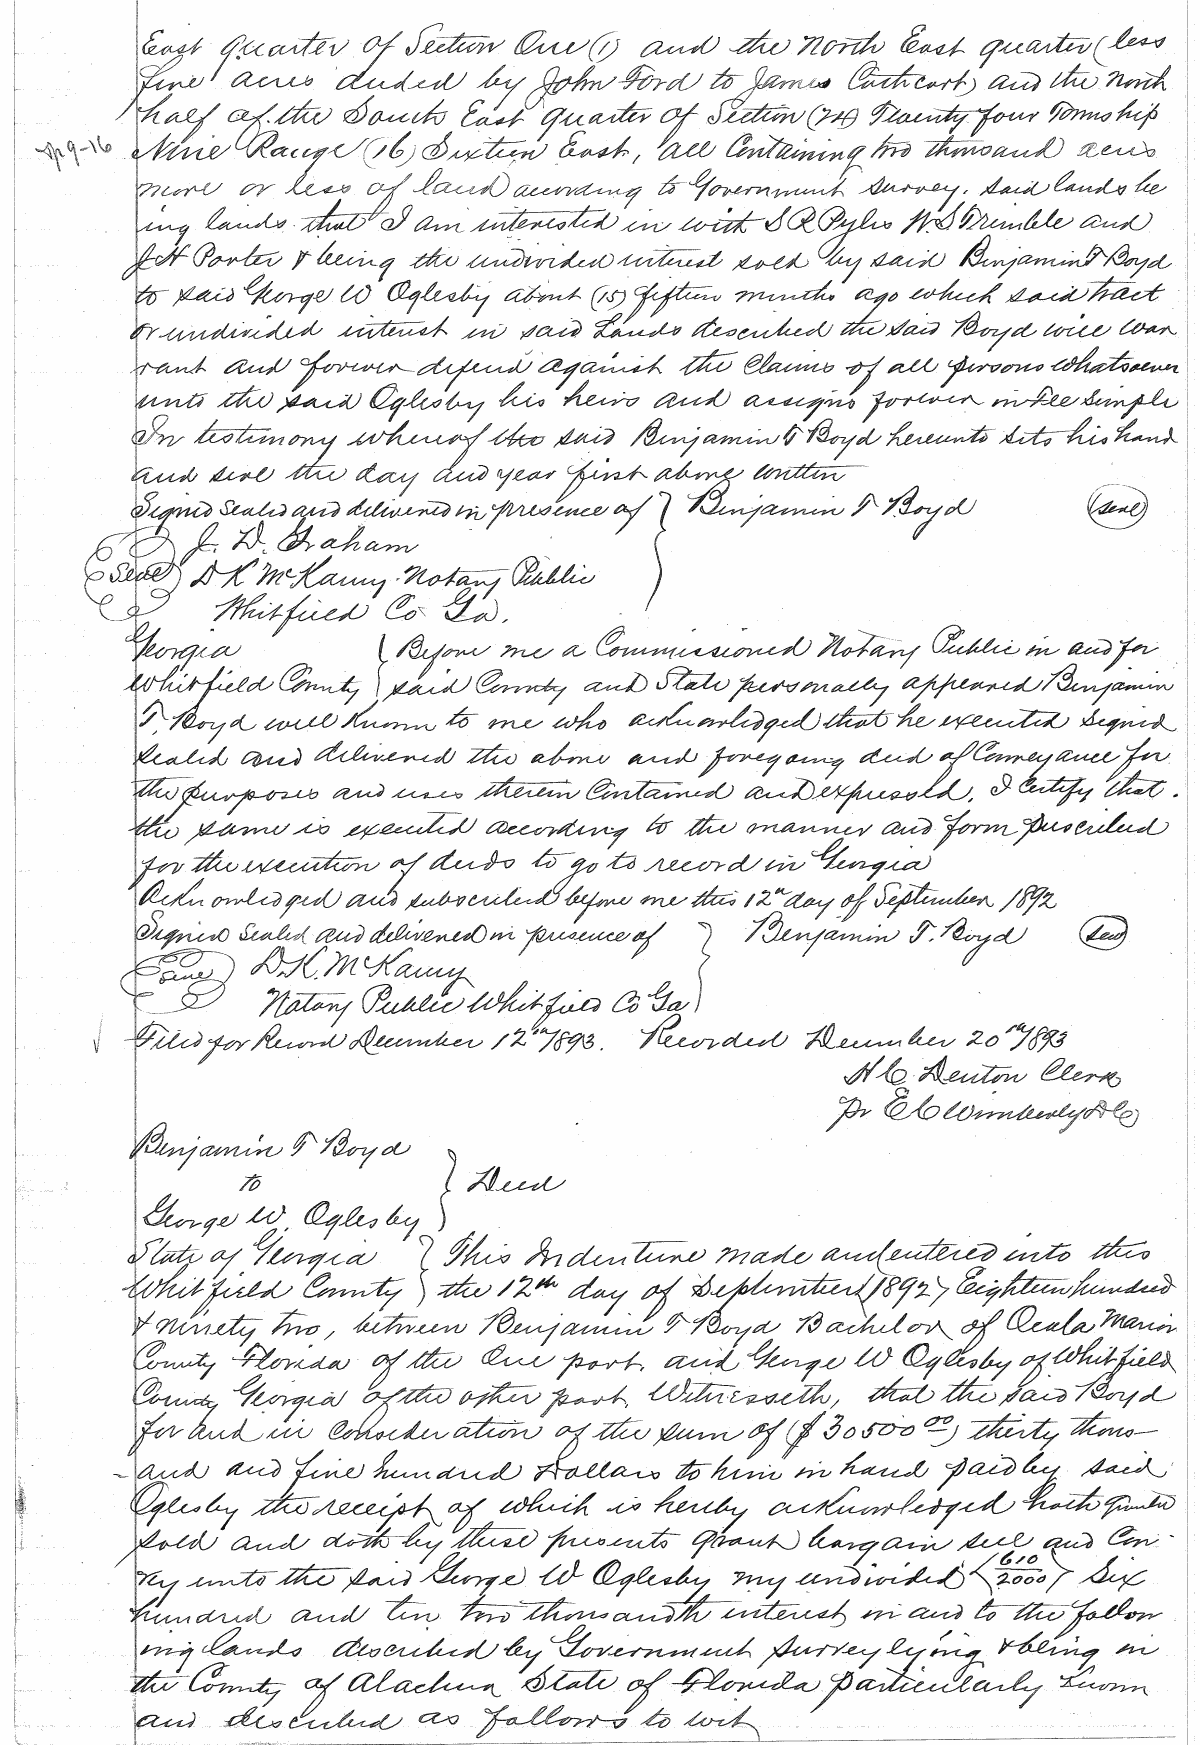 East quarter of Section One (1) and the North East quarter (less
five acres deeded by John Ford to James Cathcart) and the North
half of the South East quarter of Section (24) Twenty four Township
9-16
Nine Range (16) Sixteen East, all Containing two thousand acres
more or less of land according to Government survey. said lands be
ing lands that I am interested in with S R Pyles W S Trimble and
J H Porter & being the undivided interest sold by said Benjamin T Boyd
to said George W Oglesby about (15) fifteen months ago which said tract
or undivided interest in said Lands described the said Boyd will war
rant and forever defend against the Claims of all persons whatsoever
unto the said Oglesby his heirs and assigns forever in Fee Simple
In testimony whereof the said Benjamin T Boyd hereunto sets his hand
and seal the day and year first above written
Signed Sealed and delivered in presence of } Benjamin T Boyd (seal)
J. D. Graham
(Seal) D K McKamy Notary Public
Whitfield Co Ga.
Georgia } Before me a Commissioned Notary Public in and for
Whitfield County } said County and State personally appeared Benjamin
T. Boyd well known to me who acknowledged that he executed signed
sealed and delivered the above and foregoing deed of Conveyance for
the purposes and uses therein Contained and expressed. I certify that
the same is executed according to the manner and form prescribed
for the execution of deeds to go to record in Georgia
Acknowledged and subscribed before me this 12th day of September 1892
Signed Sealed and delivered in presence of } Benjamin T. Boyd (seal)
(Seal) D. K. McKamy
Notary Public Whitfield Co Ga
Filed for Record December 12th 1893. Recorded December 20th 1893
H C Denton Clerk
Pr E C Wimberly D C
Benjamin T Boyd
to } Deed
George W. Oglesby
State of Georgia } This Indenture made and entered into this
Whitfield County } the 12th day of September (1892) Eighteen hundred
& ninety two, between Benjamin T Boyd Bachelor of Ocala Marion
County Florida of the One part. and George W Oglesby of Whitfield
County Georgia of the other part Witnesseth, that the said Boyd
for and in Consideration of the sum of ($30500.00) thirty thous-
-and and five hundred Dollars to him in hand paid by said
Oglesby the receipt of which is hereby acknowledged hath granted
sold and doth by these presents grant bargain sell and Con-
vey unto the said George W Oglesby my undivided (610/2000) Six
hundred and ten two thousandth interest in and to the follow
ing lands described by Government survey lying & being in
the County of Alachua State of Florida particularly known
and described as follows to wit